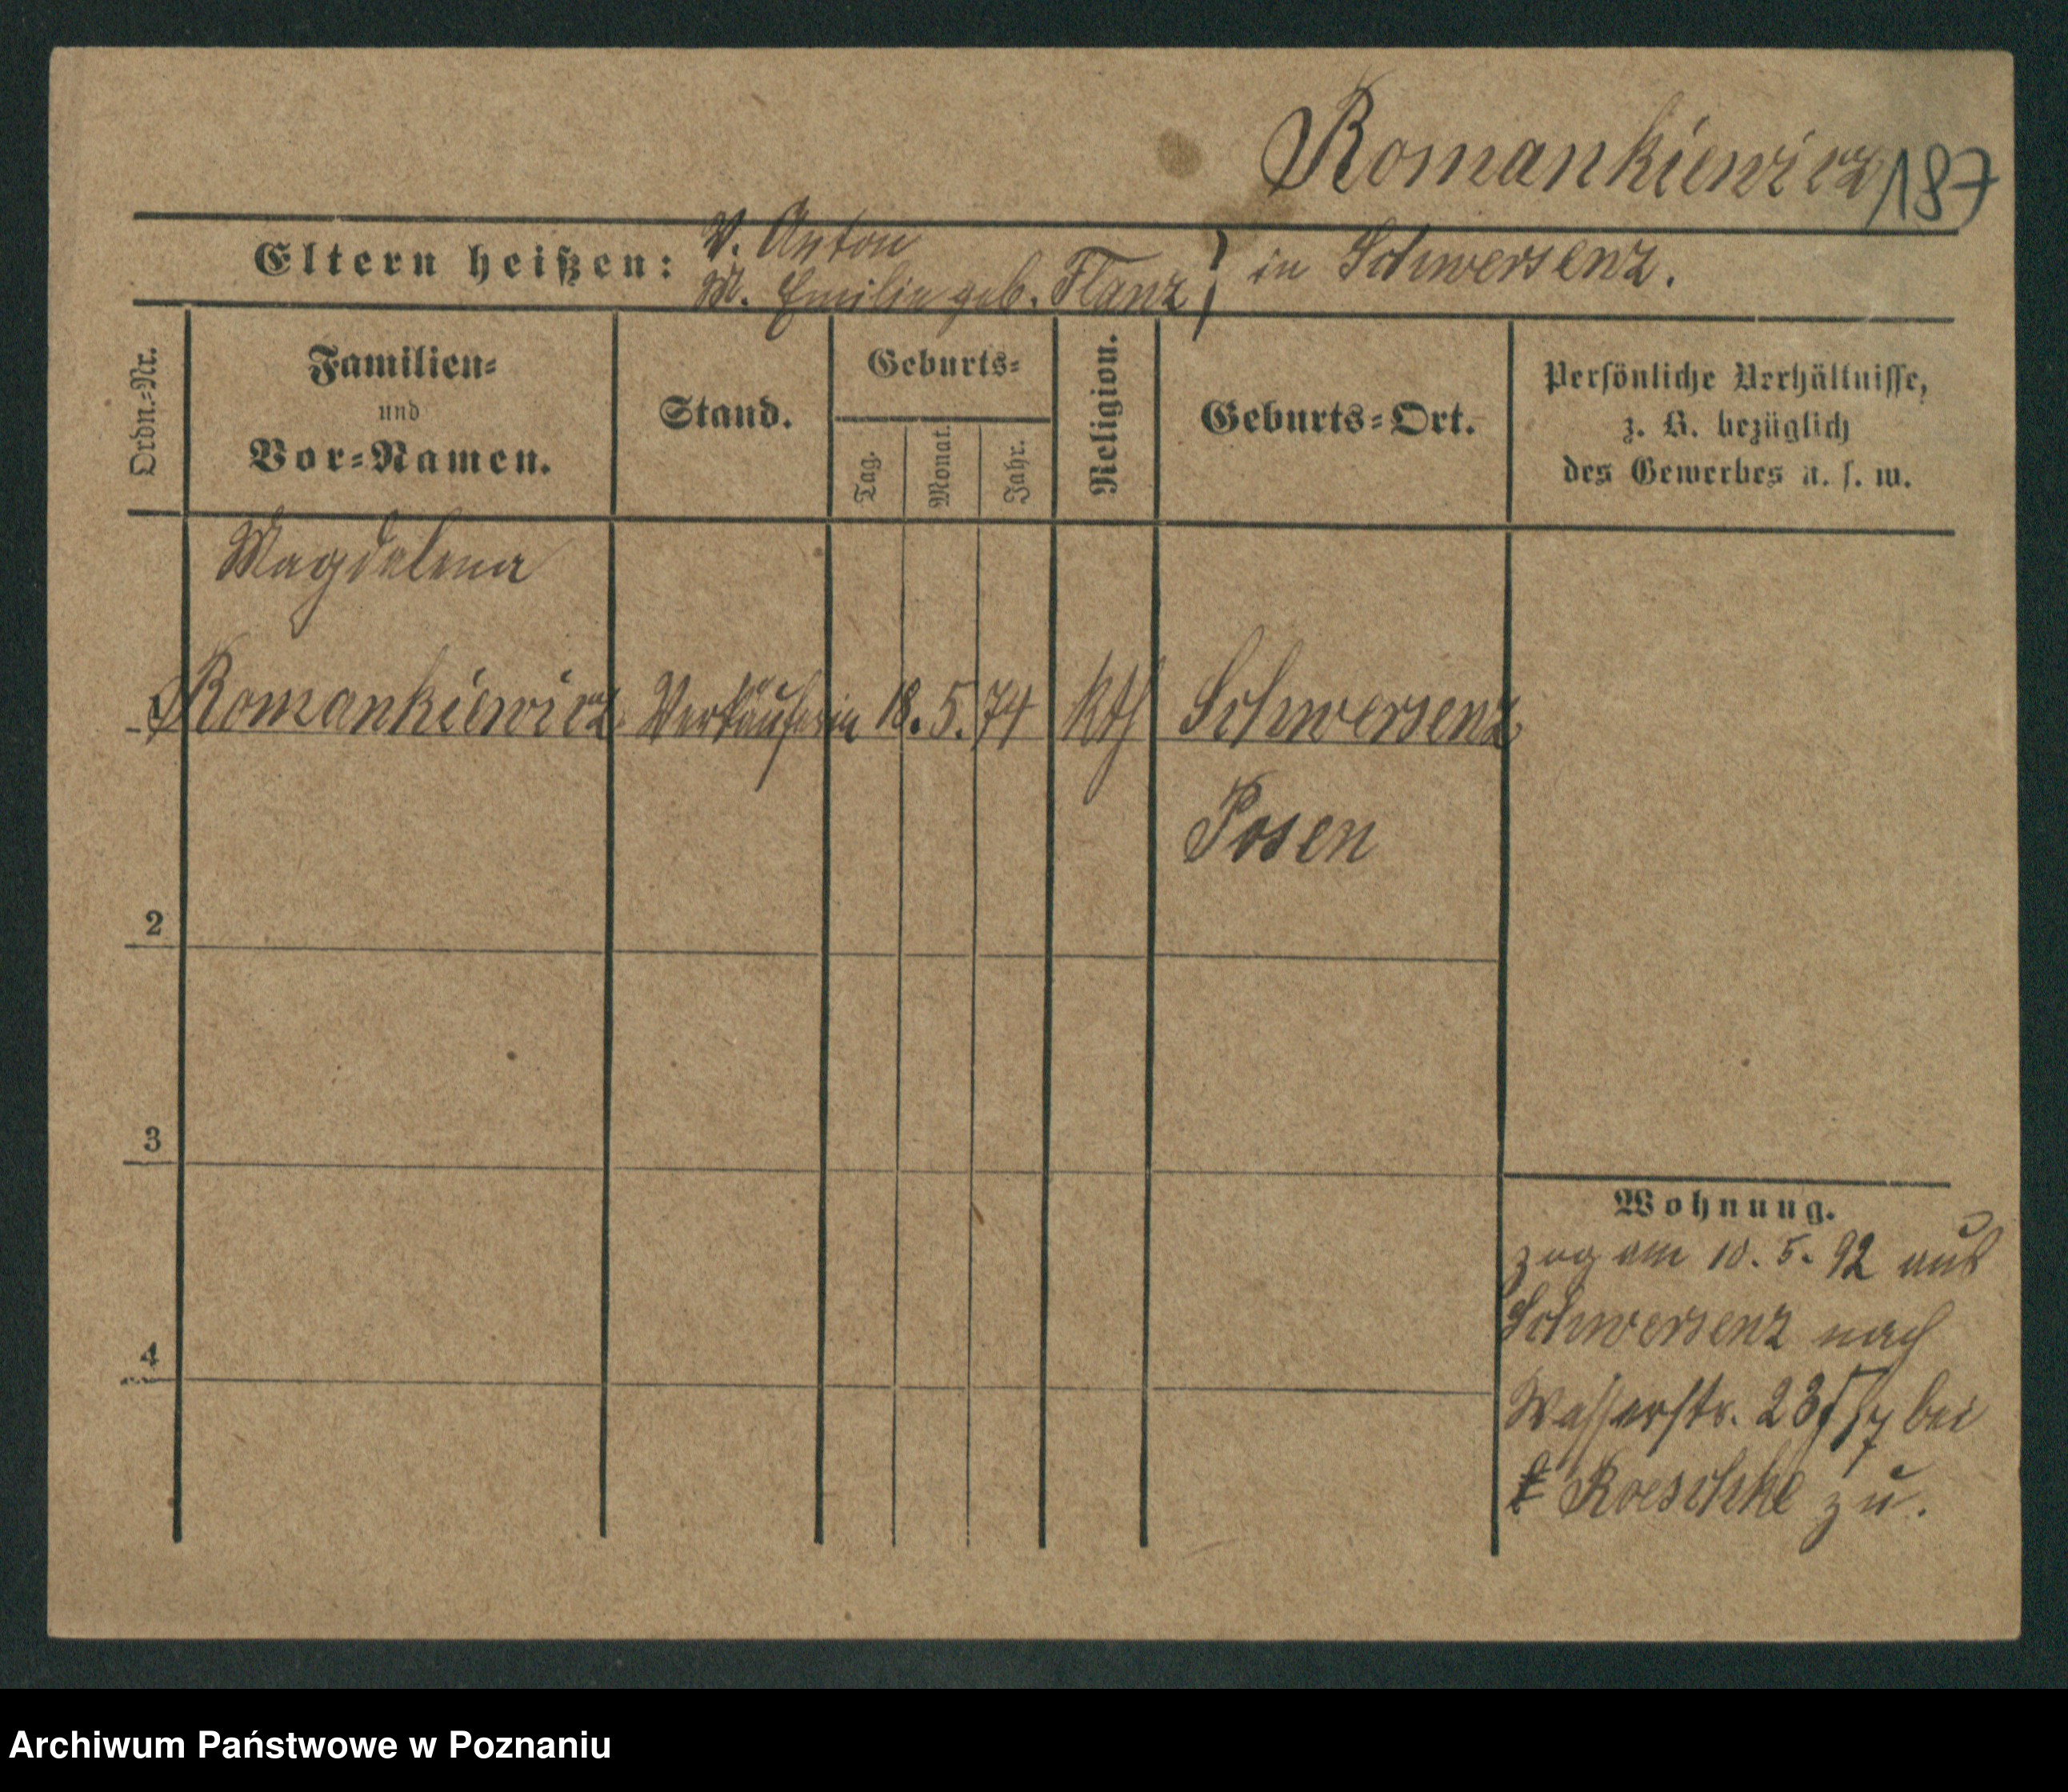 Romankiewicz
187
Eltern heißen:
V. Anton
M. Emilie geb. Flanz
} in Schwersenz.
Ordn.-Nr.
Familien-
und
Vor-Namen.
Stand.
Geburts-
Tag.
Monat.
Jahr.
Religion.
Geburts-Ort.
Persönliche Verhältnisse,
z. B. bezüglich
des Gewerbes u. s. w.
Magdalena
Romankiewicz Verkäuferin 18. 5. 74 kth Schwersenz
Posen
2
3
4
Wohnung.
zog am 10. 5. 92 aus
Schwersenz nach
Wasserstr. 23 bei
Roeschke zu.
Archiwum Państwowe w Poznaniu